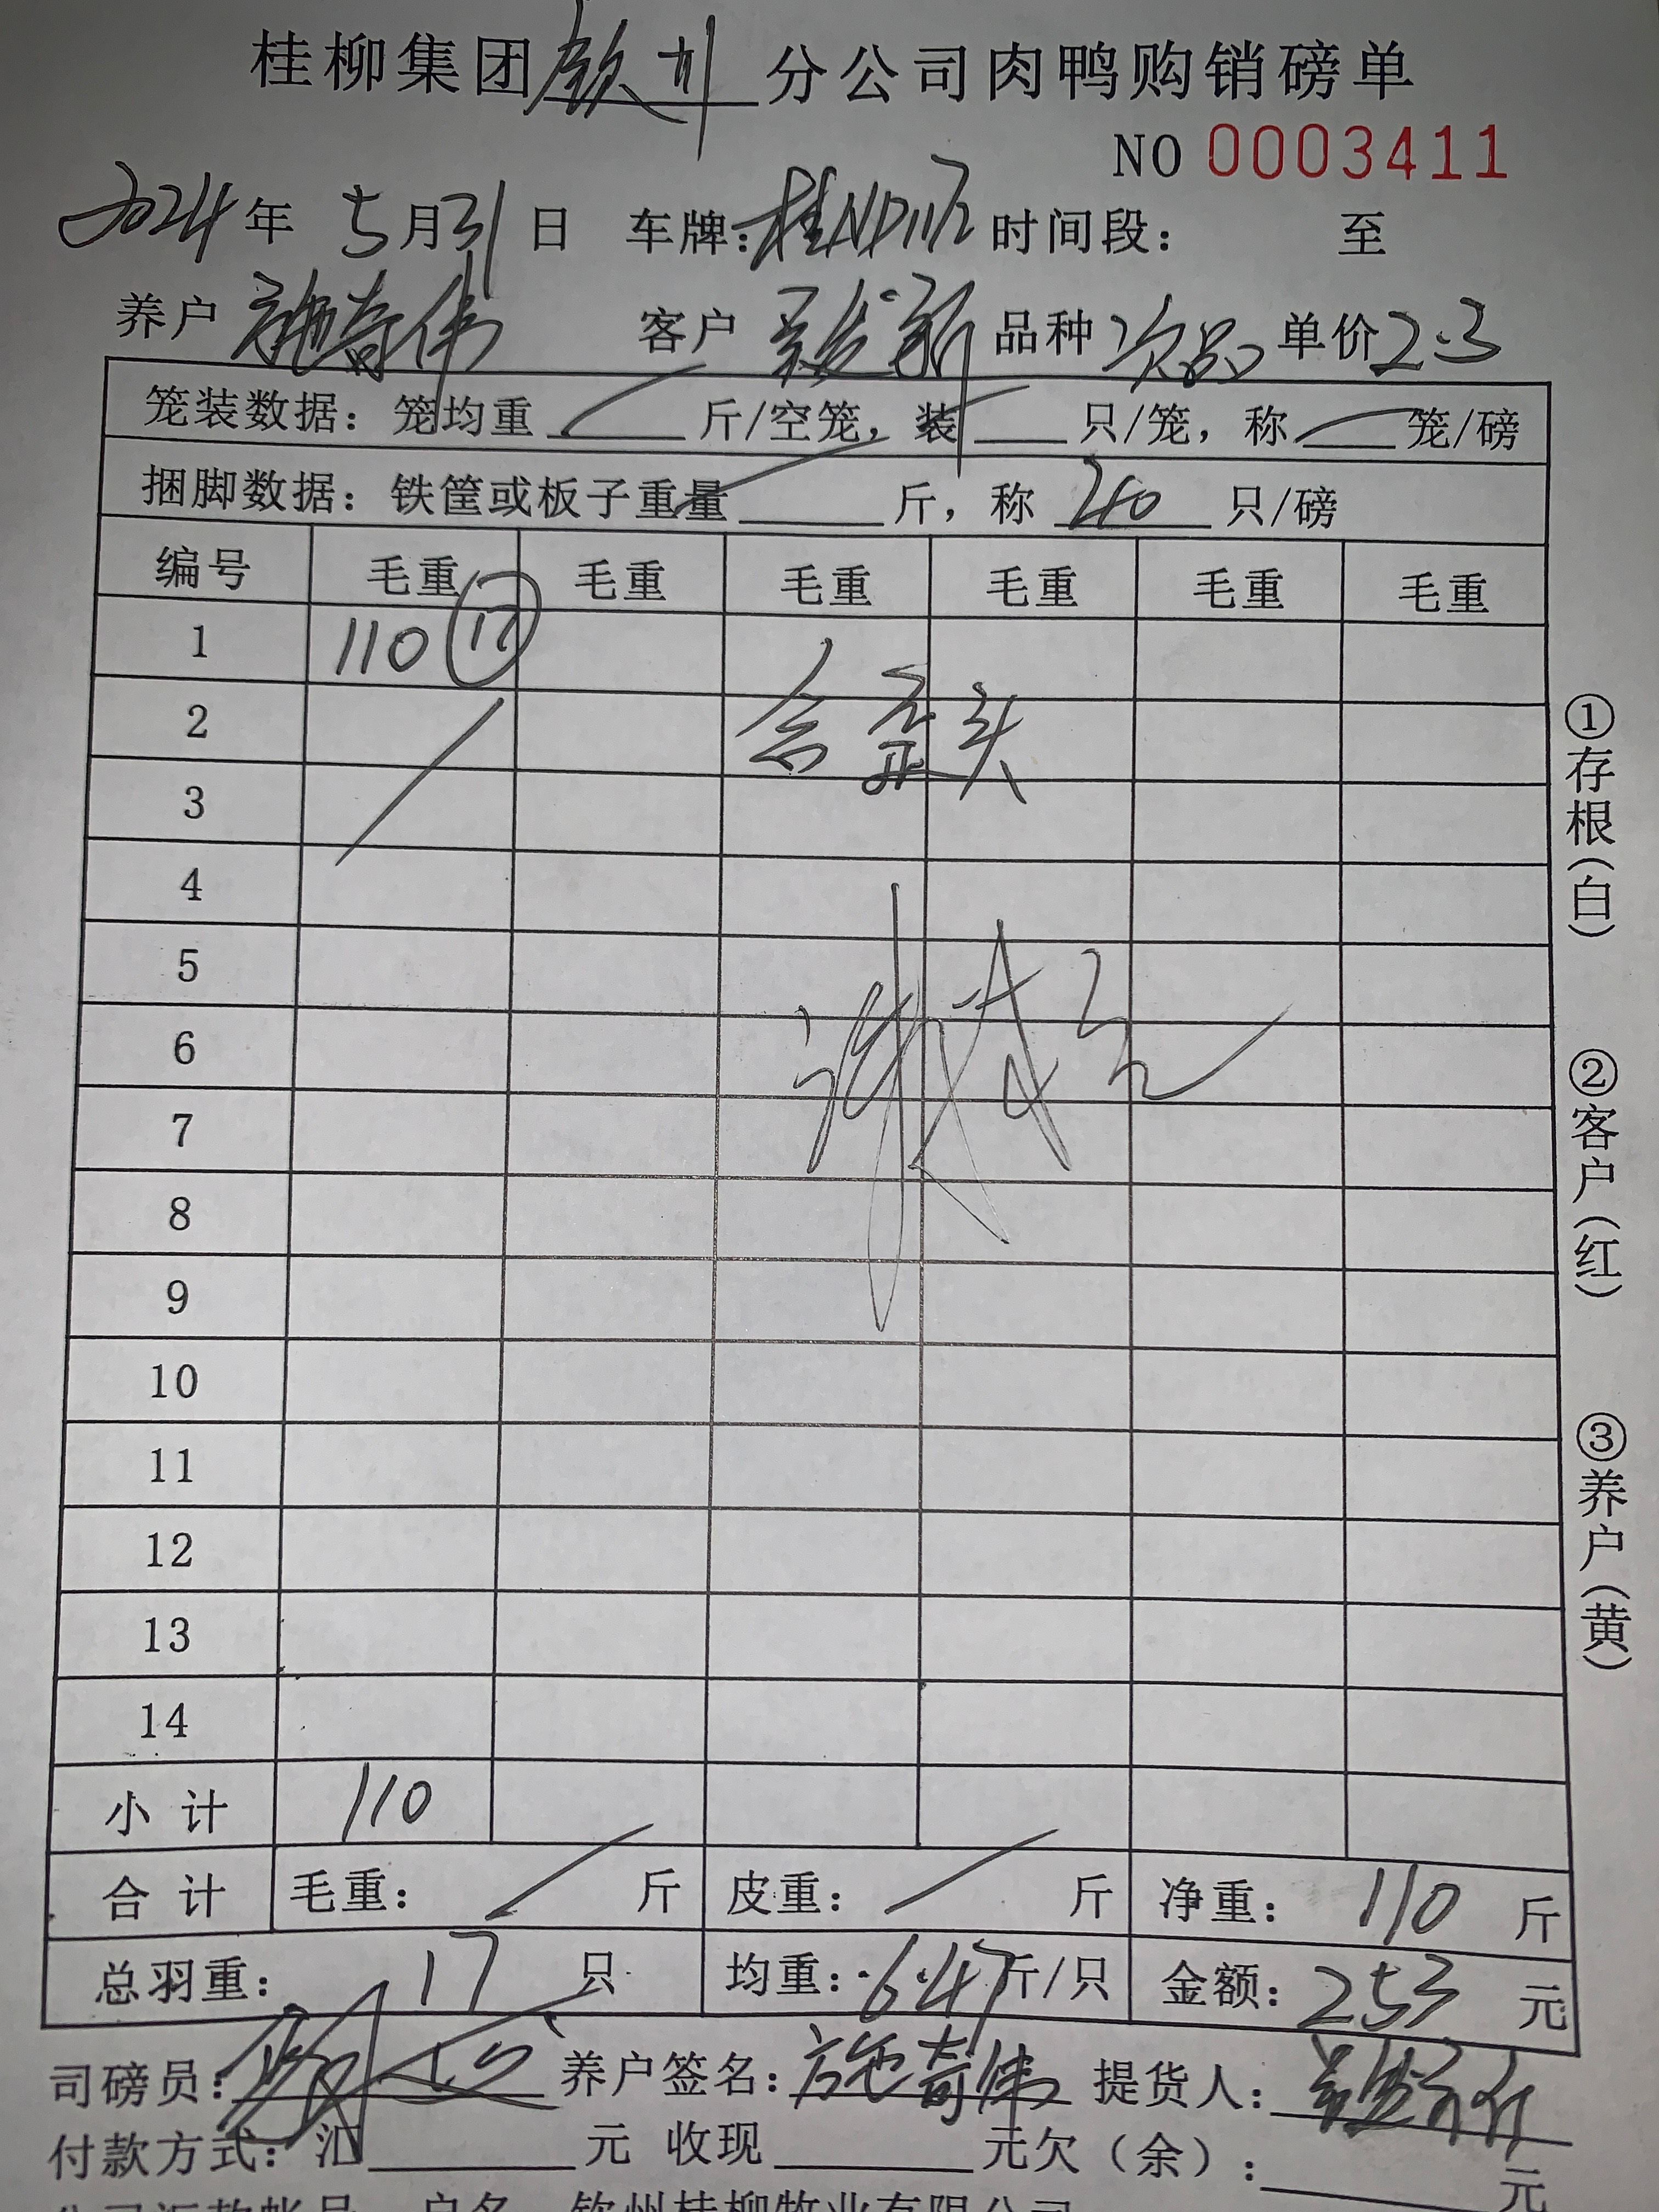 桂柳集团钦州分公司肉鸭购销磅单
NO 0003411
2024年 5月31日 车牌: 时间段: 至
养户 施奇伟 客户 品种 次品 单价 2.3
笼装数据: 笼均重 斤/空笼, 装 只/笼, 称 笼/磅
捆脚数据: 铁筐或板子重量 斤, 称 240 只/磅
编号 毛重 毛重 毛重 毛重 毛重 毛重
1 110 17
2 含歪头
3
4
5
6
7
8
9
10
11
12
13
14
小计 110
合计 毛重: 斤 皮重: 斤 净重: 110 斤
总羽重: 17 只 均重: 6.47 斤/只 金额: 253 元
司磅员: 养户签名: 施奇伟 提货人:
付款方式: 汇 元 收现 元欠(余): 元
公司汇款帐号 户名 钦州桂柳牧业有限公司
①存根(白)
②客户(红)
③养户(黄)